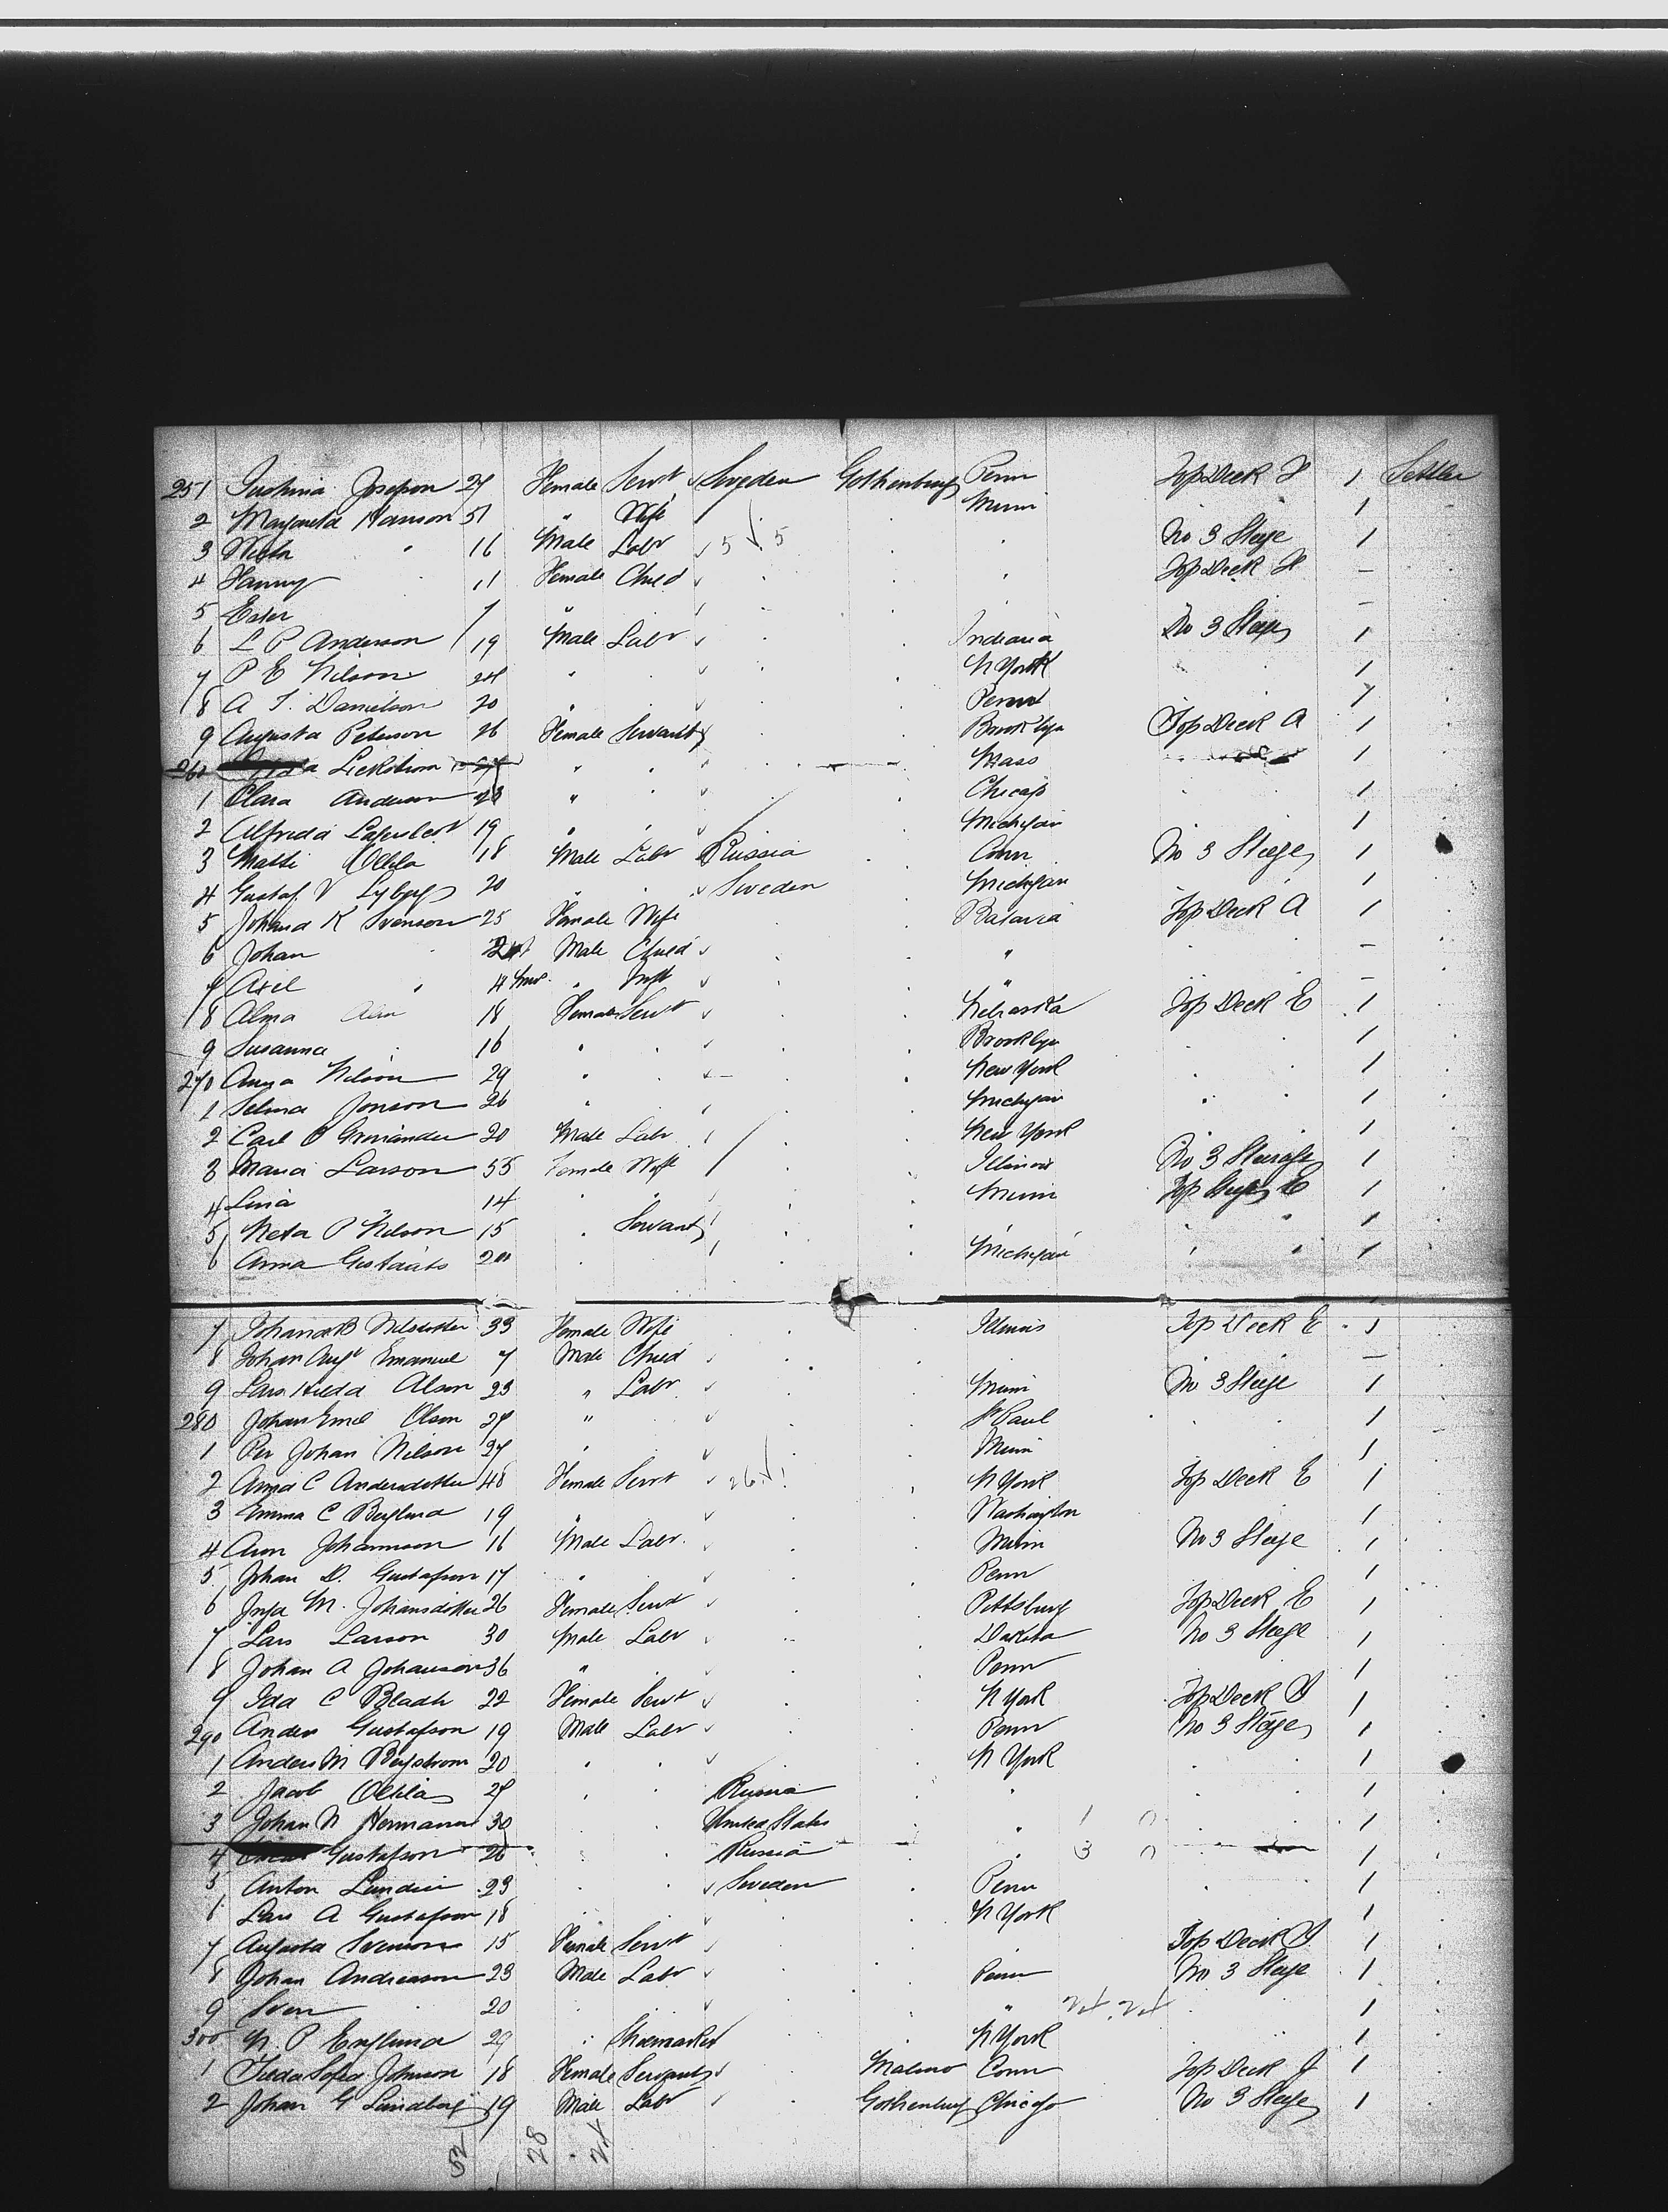 251 Josepson 27 Female Servt Sweden Gothenburg Penn Top Deck H 1 Settler
2 Margareta Hanson 51 " Wife Minn 1
3 " 16 Male Labr 5 5 No 3 Steege 1
4 Fanny 11 Female Child Top Deck H —
5 Ester 7 " —
6 L P Anderson 19 Male Labr Indiana No 3 Steege 1
7 P E Nilson 24 " N York 1
8 A F. Danielson 20 " Penn 1
9 Augusta Peterson 26 Female Servant Brooklyn Top Deck A 1
260 27 " Mass 1
1 Clara Anderson 23 " Chicago 1
2 Alfrida 19 " Michigan 1
3 Matti 18 Male Labr Russia Conn No 3 Steege 1
4 Gustaf V 20 " Sweden Michigan 1
5 Johana K Svenson 25 Female Wife Batavia Top Deck A 1
6 Johan 2 Male Child " —
7 Axel " 4 mos " Inft " —
8 Alma 18 Female Servt Nebraska Top Deck E 1
9 Susanna 16 " Brooklyn 1
270 Anna Nilson 29 " New York 1
1 Selma Jonson 26 " Michigan 1
2 Carl O 20 Male Labr New York 1
3 Maria Larson 55 Female Wife Illinois No 3 Steerage 1
4 Lina 14 " " Minn Top Steege E 1
5 Neta P Nilson 15 Servant " 1
6 Anna 20 Michigan " 1
7 Johana B Nilsdotter 33 Female Wife Illinois Top Deck E 1
8 Johan Augt Emanuel 7 Male Child —
9 Lars Olson 23 " Labr Minn No 3 Steege 1
280 Johan Emil Olson 27 " St Paul 1
1 Per Johan Nilson 27 " Minn 1
2 Anna C Andersdotter 48 Female Servt 26 1 N York Top Deck E 1
3 Emma C Berglund 19 " Washington 1
4 Aron Johannson 16 Male Labr Minn No 3 Steege 1
5 Johan D. Gustafson 17 " Penn 1
6 Inga M. Johansdotter 26 Female Servt Pittsburg Top Deck E 1
7 Lars Larson 30 Male Labr Dakota No 3 Steege 1
8 Johan A Johanson 36 " Penn 1
9 Ida C Bladh 22 Female Servt N York Top Deck 1
290 Anders Gustafson 19 Male Labr Penn No 3 Steege 1
1 Anders M Bergstrom 20 N York 1
2 Jacob 27 Russia " 1
3 Johan N 30 United States " 1 0 1
4 Gustafson 26 Russia 3 0 1
5 Anton Lundin 23 Sweden Penn 1
6 Lars A Gustafson 18 N York 1
7 Augusta Svenson 15 Female Servt Top Deck 1
8 Johan Andreason 23 Male Labr Penn No 3 Steege 1
9 Sven 20 " 24 24 1
300 N. P Englund 29 " Shoemaker N York 1
1 Sofia Johnson 18 Female Servant Malmo Conn Top Deck J 1
2 Johan G Lundberg 19 Male Labr Gothenburg Chicago No 3 Steege 1
52 28 24